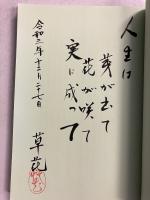 人生は
芽が出て
花が咲て
実に成って
令和二年十二月二十七日
草花